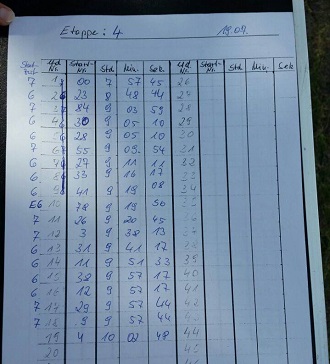 Etappe: 4 19.07.
Lfd. Nr. Start- Nr. Std Min. Sek. Lfd. Nr. Start- Nr. Std Min. Sek
7 00 7 57 45 26
6 23 8 48 44
7 84 9 03 59 28
6 30 9 05 10 29
6 28 9 05 10 30
7 55 9 09 54 31
6 27 9 11 11 32
6 33 9 16 17 33
6 41 9 19 08 34
E6 78 9 19 56
7 11 26 9 20 45
7 12 3 9 38 13
6 13 31 9 41 17
6 14 11 9 51 33 39
6 15 38 9 57 17 40
6 16 12 9 57 17 41
7 17 29 9 57 44 42
7 18 9 9 57 44
19 4 10 02 48 44
20 45